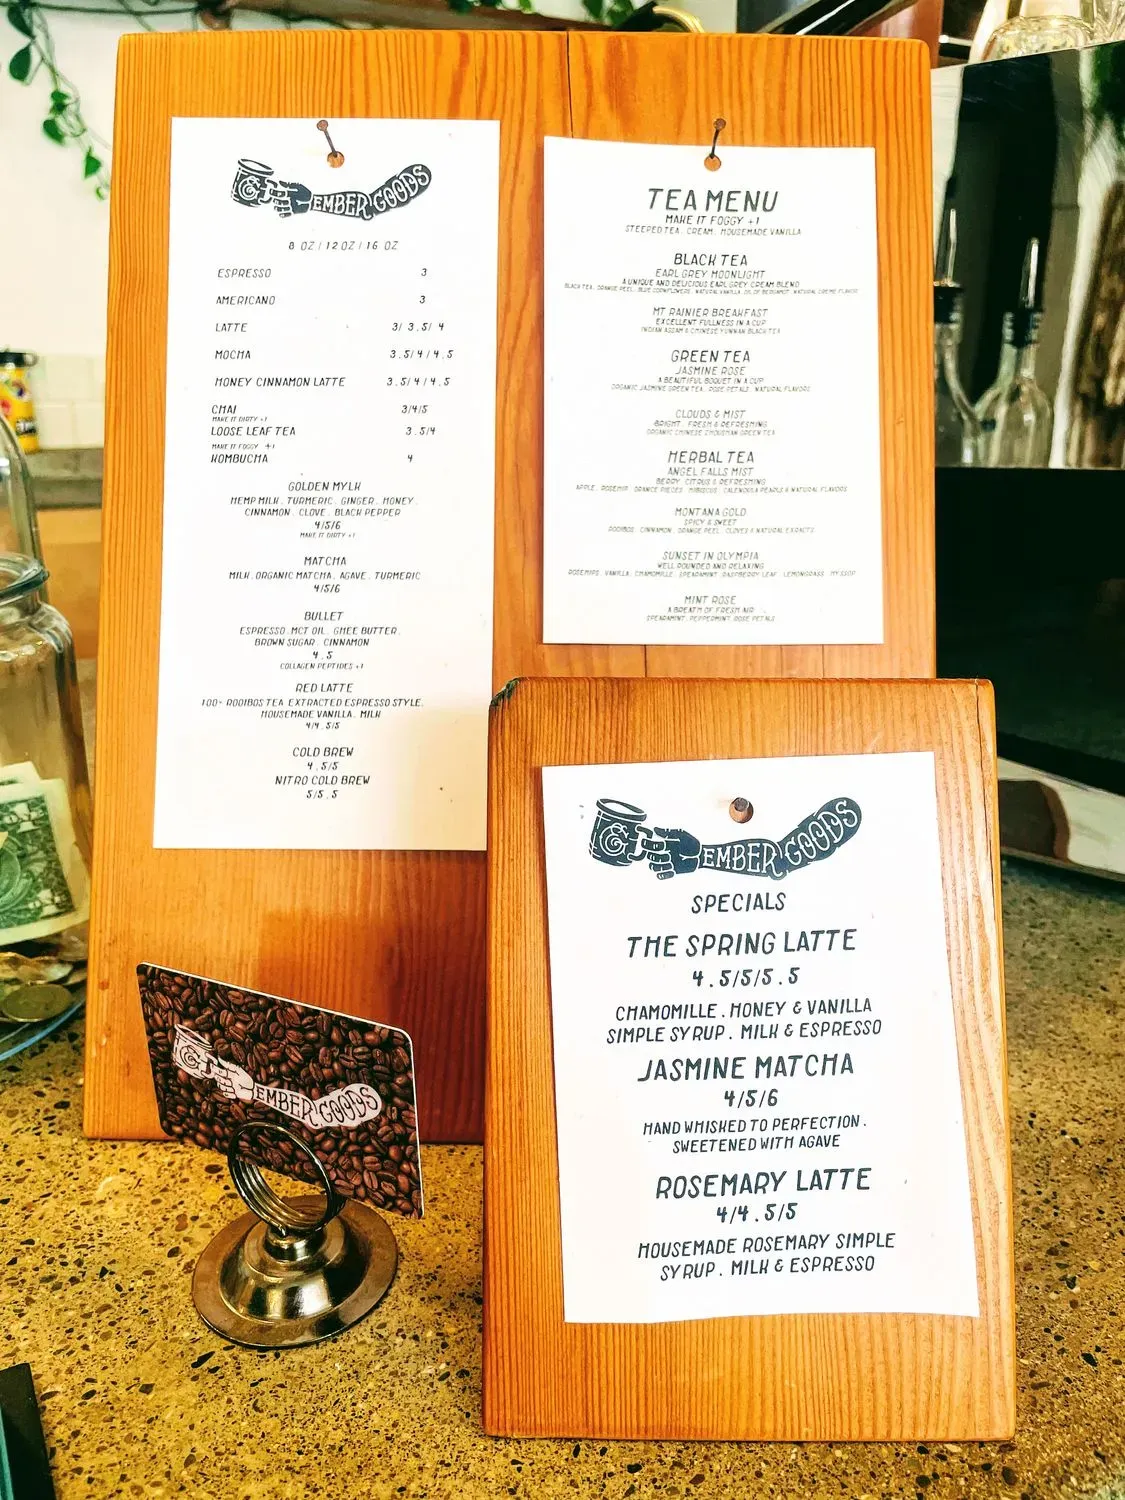 EMBER GOODS
8 OZ / 12 OZ / 16 OZ
ESPRESSO 3
AMERICANO 3
LATTE 3/ 3.5/ 4
MOCHA 3.5/ 4 / 4.5
HONEY CINNAMON LATTE 3.5/ 4 / 4.5
CHAI 3/4/5
MAKE IT DIRTY +1
LOOSE LEAF TEA 3.5/4
MAKE IT FOGGY +1
KOMBUCHA 4
GOLDEN MYLK
HEMP MILK . TURMERIC . GINGER . HONEY .
CINNAMON . CLOVE . BLACK PEPPER
4/5/6
MAKE IT DIRTY +1
MATCHA
MILK . ORGANIC MATCHA . AGAVE . TURMERIC
4/5/6
BULLET
ESPRESSO . MCT OIL . GHEE BUTTER .
BROWN SUGAR . CINNAMON
4.5
COLLAGEN PEPTIDES +1
RED LATTE
100% ROOIBOS TEA EXTRACTED ESPRESSO STYLE.
HOUSEMADE VANILLA . MILK
4/4.5/5
COLD BREW
4.5/5
NITRO COLD BREW
5/5.5
TEA MENU
MAKE IT FOGGY +1
STEEPED TEA . CREAM . HOUSEMADE VANILLA
BLACK TEA
EARL GREY MOONLIGHT
A UNIQUE AND DELICIOUS EARL GREY CREAM BLEND
BLACK TEA . ORANGE PEEL . BLUE CORNFLOWERS . NATURAL VANILLA . OIL OF BERGAMOT . NATURAL CREME FLAVOR
MT RAINIER BREAKFAST
EXCELLENT FULLNESS IN A CUP
INDIAN ASSAM & CHINESE YUNNAN BLACK TEA
GREEN TEA
JASMINE ROSE
A BEAUTIFUL BOQUET IN A CUP
ORGANIC JASMINE GREEN TEA . ROSE PETALS . NATURAL FLAVORS
CLOUDS & MIST
BRIGHT . FRESH & REFRESHING
ORGANIC CHINESE ZHOUSHAN GREEN TEA
HERBAL TEA
ANGEL FALLS MIST
BERRY . CITRUS & REFRESHING
APPLE . ROSEHIP . ORANGE PIECES . HIBISCUS . CALENDULA PEARLS & NATURAL FLAVORS
MONTANA GOLD
SPICY & SWEET
ROOIBOS . CINNAMON . ORANGE PEEL . CLOVES & NATURAL EXRACTS
SUNSET IN OLYMPIA
WELL ROUNDED AND RELAXING
ROSEHIPS . VANILLA . CHAMOMILLE . SPEARAMINT . RASPBERRY LEAF . LEMONGRASS . HYSSOP
MINT ROSE
A BREATH OF FRESH AIR
SPEARAMINT . PEPPERMINT . ROSE PETALS
EMBER GOODS
SPECIALS
THE SPRING LATTE
4.5/5/5.5
CHAMOMILLE . HONEY & VANILLA
SIMPLE SYRUP . MILK & ESPRESSO
JASMINE MATCHA
4/5/6
HAND WHISKED TO PERFECTION .
SWEETENED WITH AGAVE
ROSEMARY LATTE
4/4.5/5
HOUSEMADE ROSEMARY SIMPLE
SYRUP . MILK & ESPRESSO
EMBER GOODS